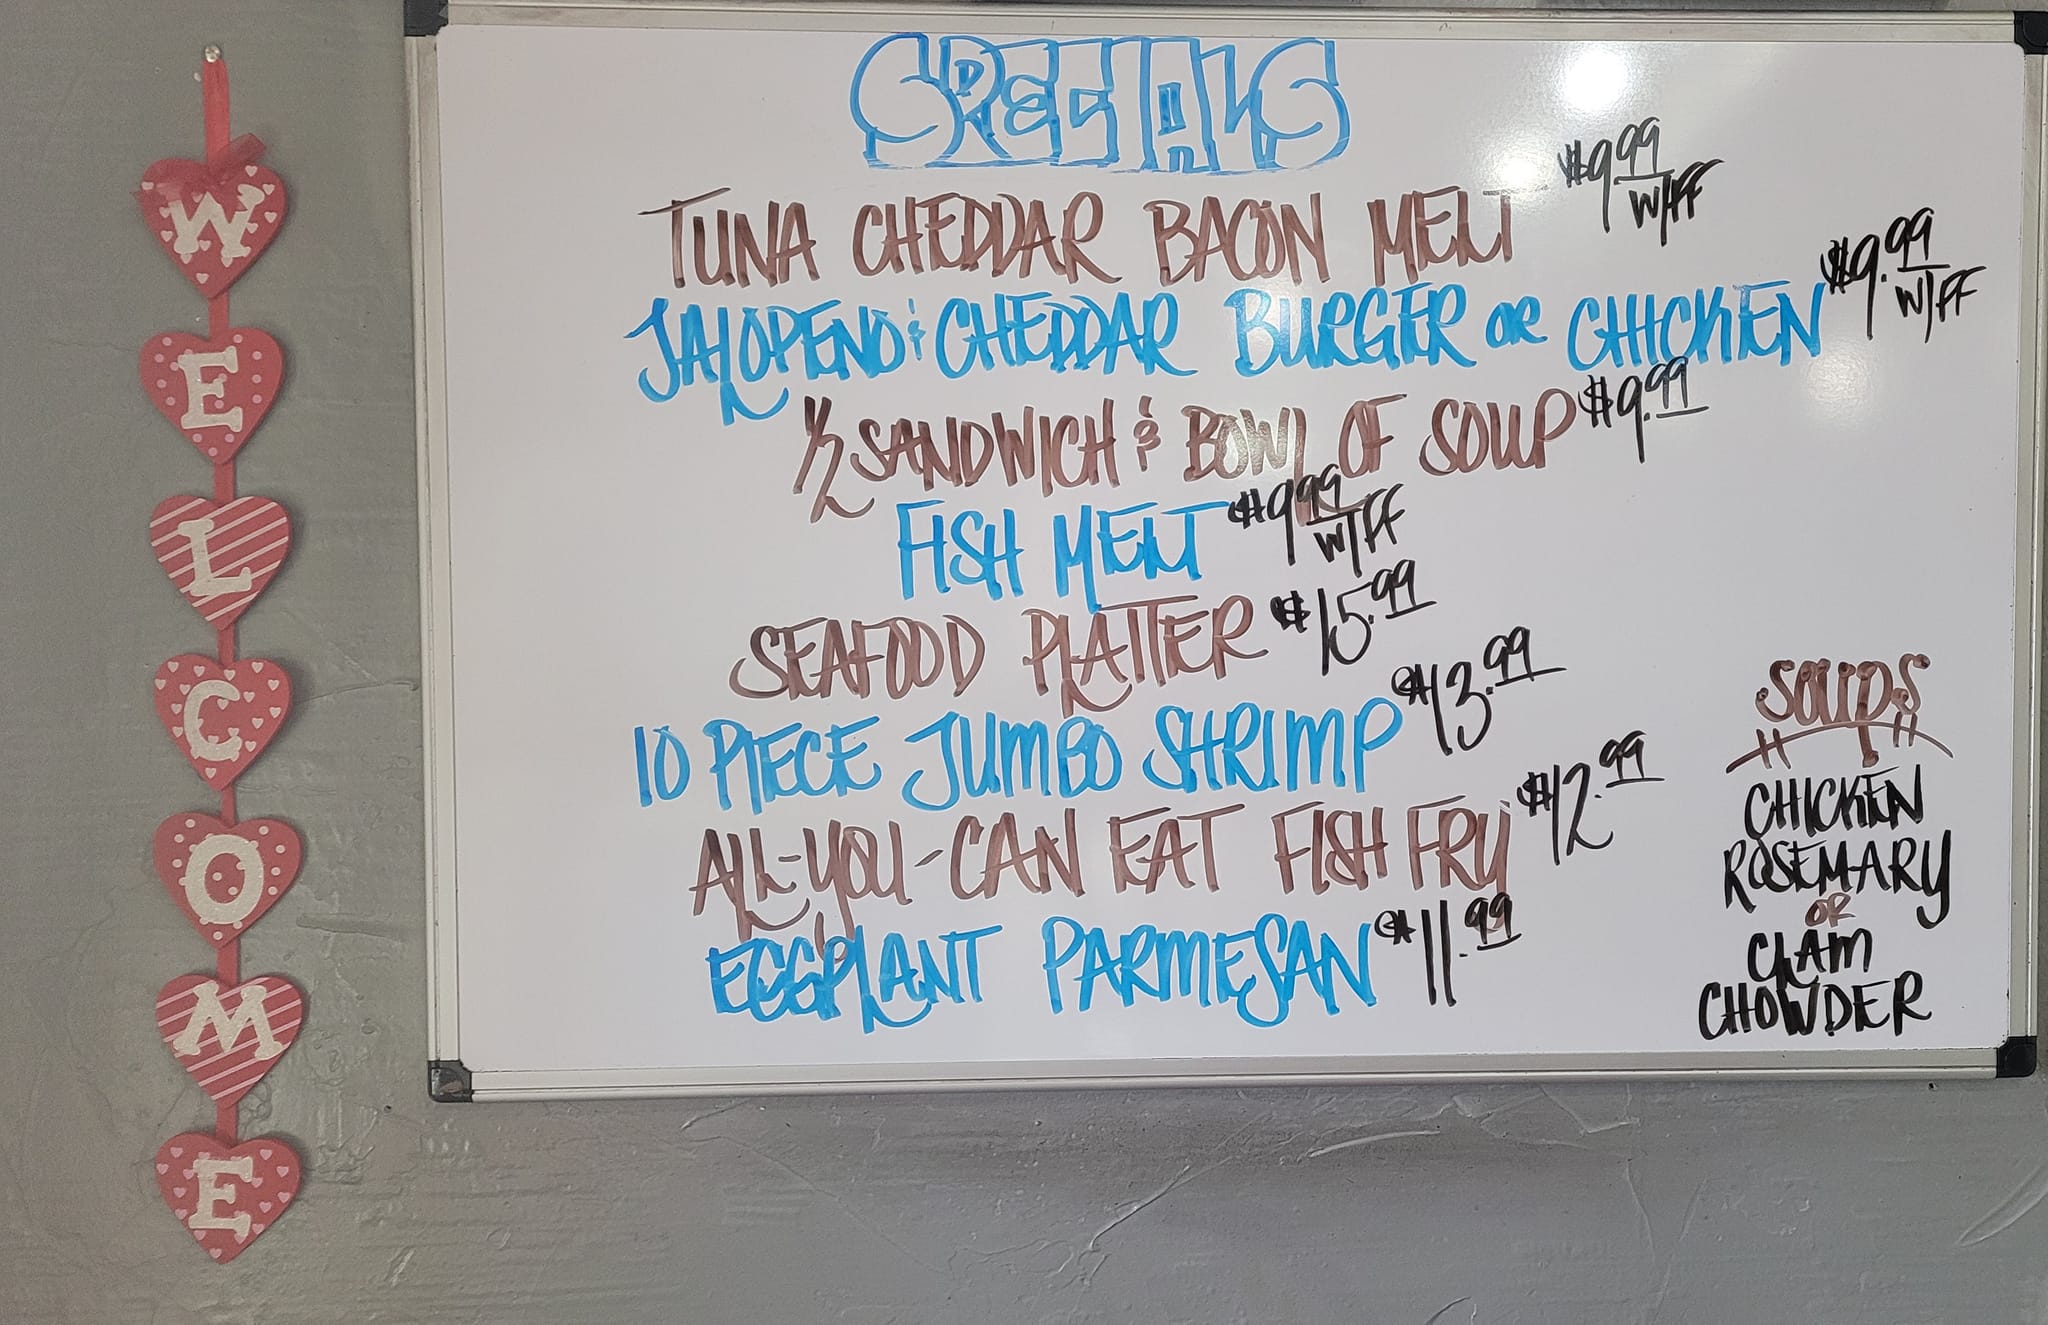 WELCOME
SPECIALS
TUNA CHEDDAR BACON MELT $9.99 W/FF
JALOPENO & CHEDDAR BURGER OR CHICKEN $9.99 W/FF
1/2 SANDWICH & BOWL OF SOUP $9.99
FISH MELT $9.99 W/FF
SEAFOOD PLATTER $15.99
10 PIECE JUMBO SHRIMP $13.99
ALL-YOU-CAN EAT FISH FRY $12.99
EGGPLANT PARMESAN $11.99
SOUPS
CHICKEN
ROSEMARY
OR
CLAM
CHOWDER